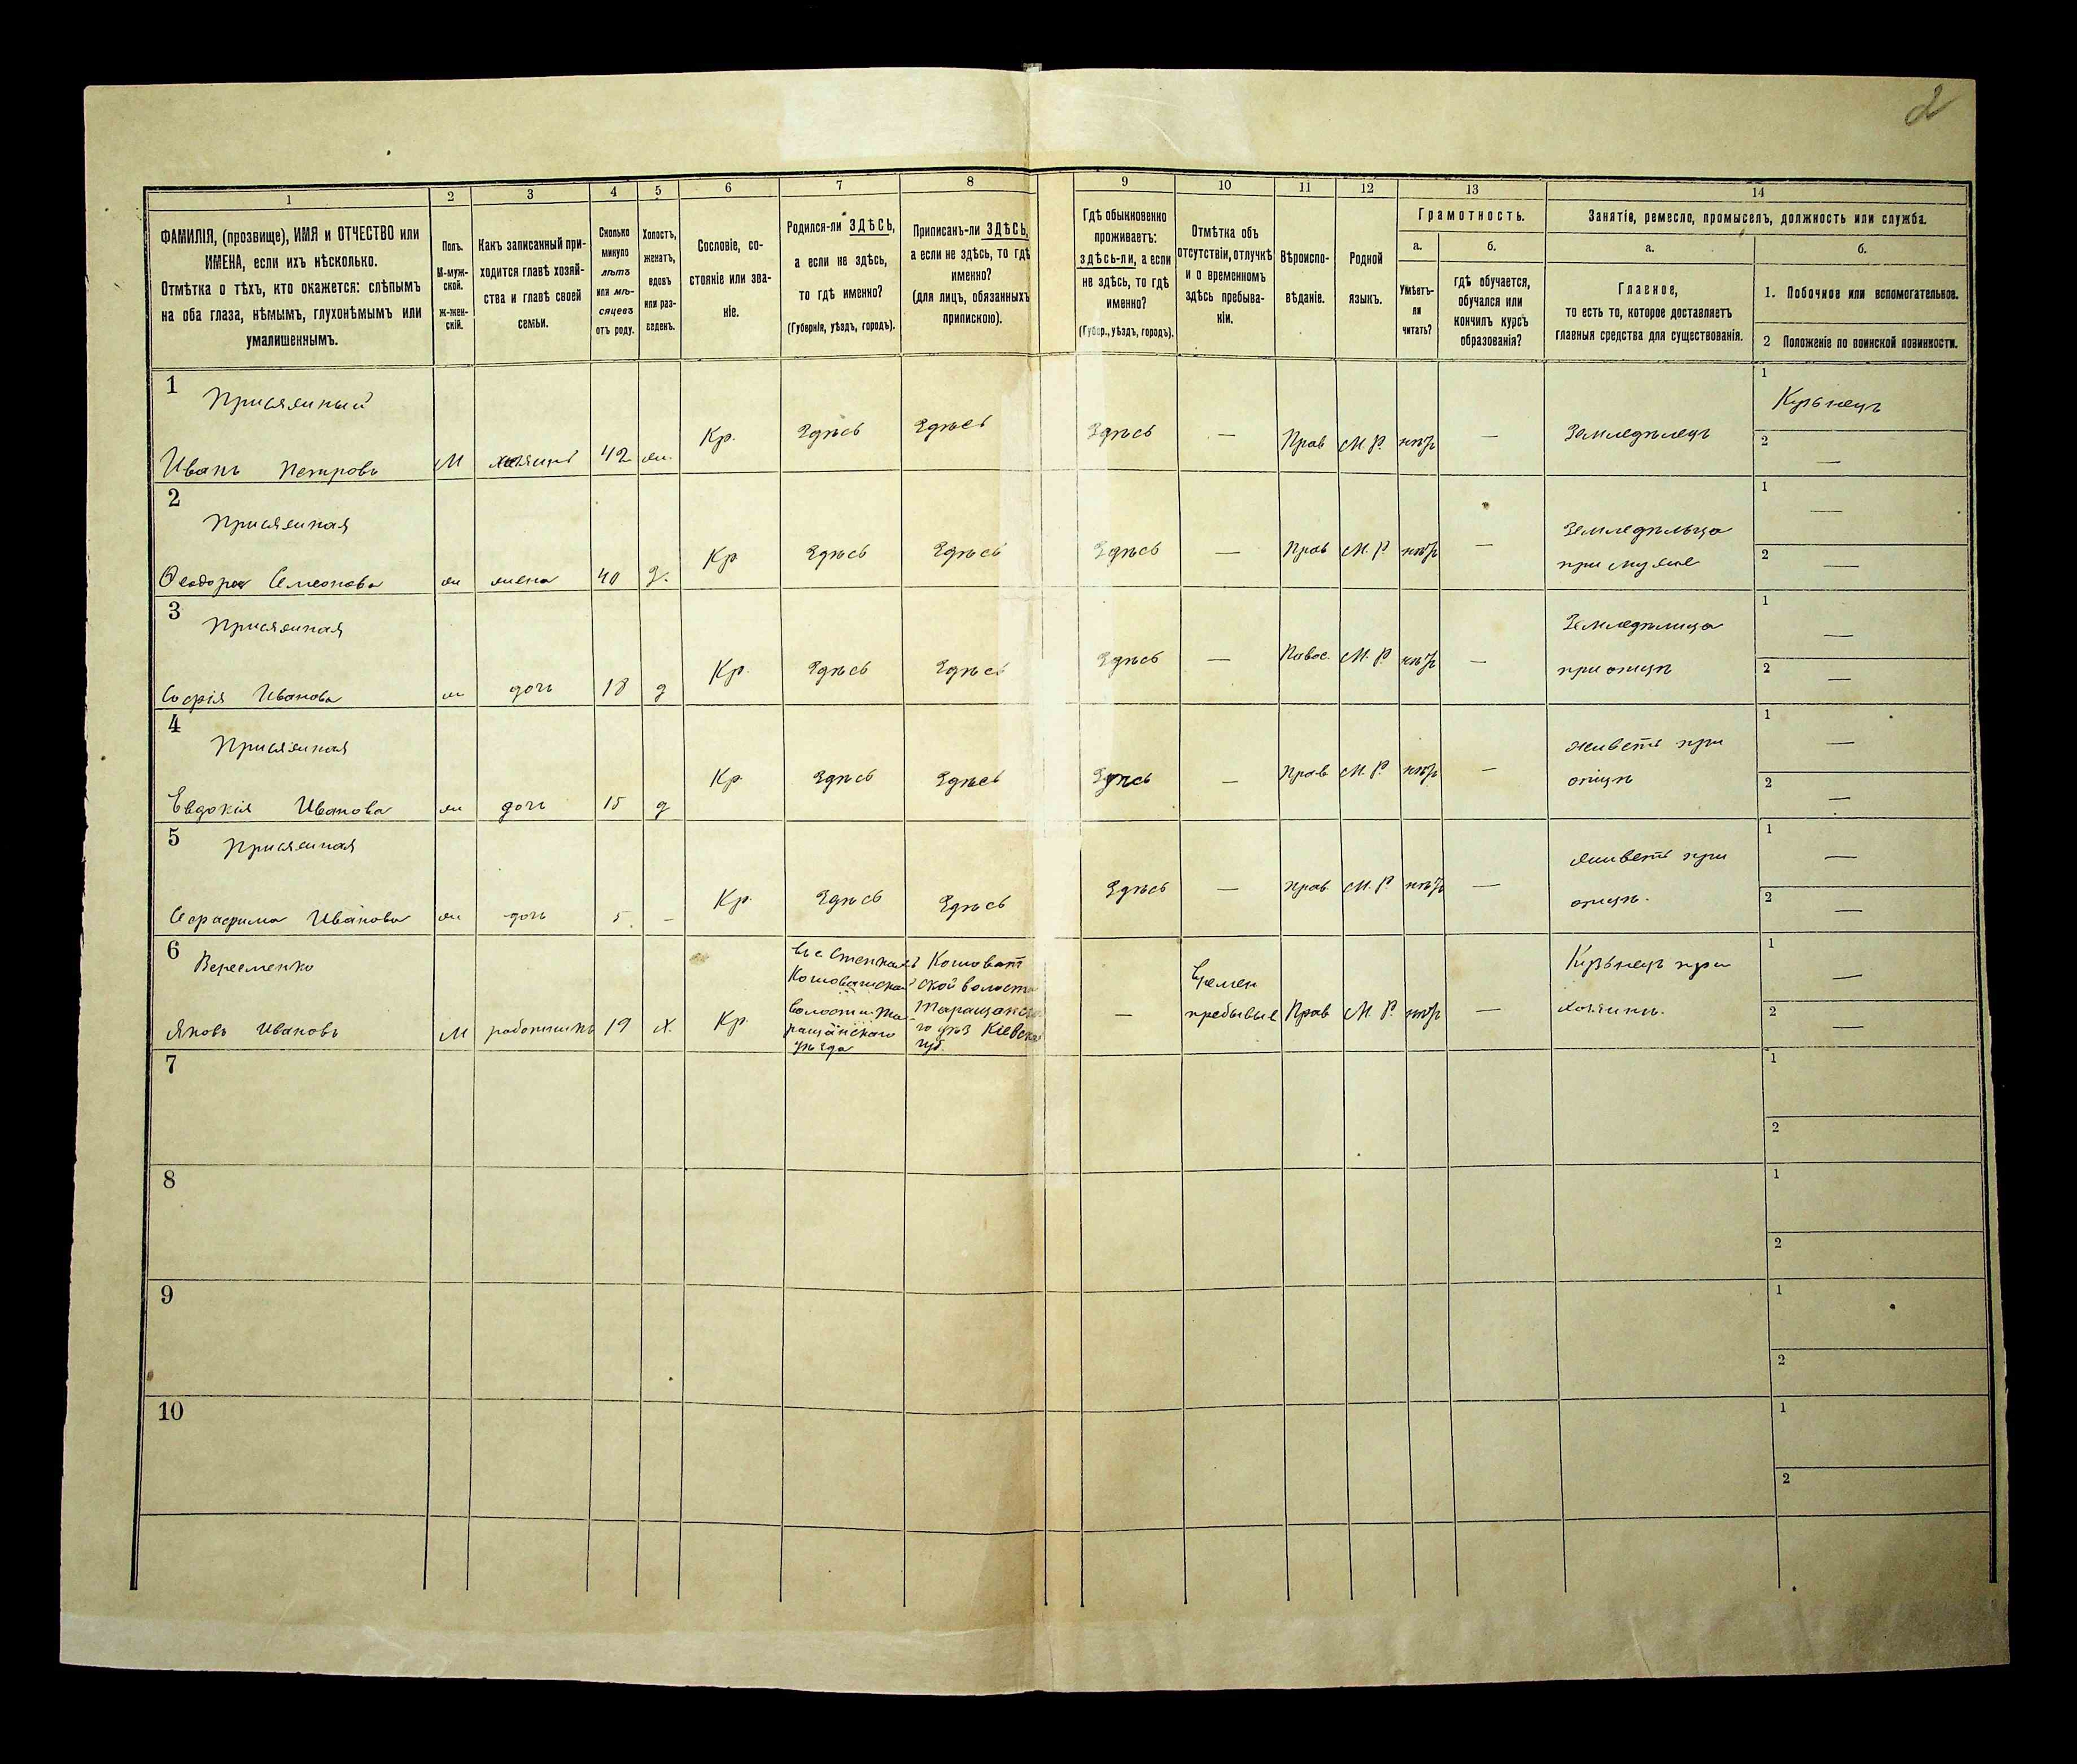 2
1 2 3 4 5 6 7 8 9 10 11 12 13 14
ФАМИЛІЯ, (прозвище), ИМЯ и ОТЧЕСТВО или
ИМЕНА, если ихъ нѣсколько.
Отмѣтка о тѣхъ, кто окажется: слѣпымъ
на оба глаза, нѣмымъ, глухонѣмымъ или
умалишеннымъ.
Полъ.
М-муж-
ской.
ж-жен-
скій.
Какъ записанный при-
ходится главѣ хозяй-
ства и главѣ своей
семьи.
Сколько
минуло
лѣтъ
или мѣ-
сяцевъ
отъ роду.
Холостъ,
женатъ,
вдовъ
или раз-
веденъ.
Сословіе, со-
стояніе или зва-
ніе.
Родился-ли ЗДѢСЬ,
а если не здѣсь,
то гдѣ именно?
(Губернія, уѣздъ, городъ).
Приписанъ-ли ЗДѢСЬ,
а если не здѣсь, то гдѣ
именно?
(для лицъ, обязанныхъ
припискою).
Гдѣ обыкновенно
проживаетъ:
здѣсь-ли, а если
не здѣсь, то гдѣ
именно?
(Губер., уѣздъ, городъ).
Отмѣтка объ
отсутствіи, отлучкѣ
и о временномъ
здѣсь пребыва-
ніи.
Вѣроиспо-
вѣданіе.
Родной
языкъ.
Грамотность.
а.
Умѣетъ-
ли
читать?
б.
гдѣ обучается,
обучался или
кончилъ курсъ
образованія?
Занятіе, ремесло, промыселъ, должность или служба.
а.
Главное,
то есть то, которое доставляетъ
главныя средства для существованія.
б.
1. Побочное или вспомогательное.
2 Положеніе по воинской повинности.
1 Присяжный
Иванъ Петровъ М хозяинъ 42 ж. Кр. Здѣсь Здѣсь Здѣсь — Прав М.Р. нѣтъ — Земледѣлецъ
1 Кузьнецъ
2 —
2 Присяжная
Феодора Семенова ж жена 40 з. Кр Здѣсь Здѣсь Здѣсь — Прав М.Р. нѣтъ —
Земледѣльца
при мужѣ
1 —
2 —
3 Присяжная
Софія Иванова ж дочь 18 д Кр. Здѣсь Здѣсь Здѣсь — М.Р. нѣтъ —
Земледѣлица
при отцѣ
1 —
2 —
4 Присяжная
Евдокія Иванова ж дочь 15 д Кр Здѣсь Здѣсь Здѣсь — Прав М.Р. нѣтъ —
живетъ при
отцѣ
1 —
2 —
5 Присяжная
Серафима Иванова ж дочь 5. — Кр. Здѣсь Здѣсь Здѣсь — Прав М.Р. нѣтъ —
живетъ при
отцѣ.
1 —
2 —
6 Веременко
Яковъ Ивановъ М работникъ 19 Х. Кр.
Въ с
волости Та-
ращанскаго
уѣзда
Кошоват
ской волости
Таращанска-
го уѣз Кіевской
губ.
—
Времен
пребываніе
Прав М.Р. нѣтъ —
Кузьнецъ при
хозяинѣ.
1 —
2 —
7 1
2
8 1
2
9 1
2
10 1
2